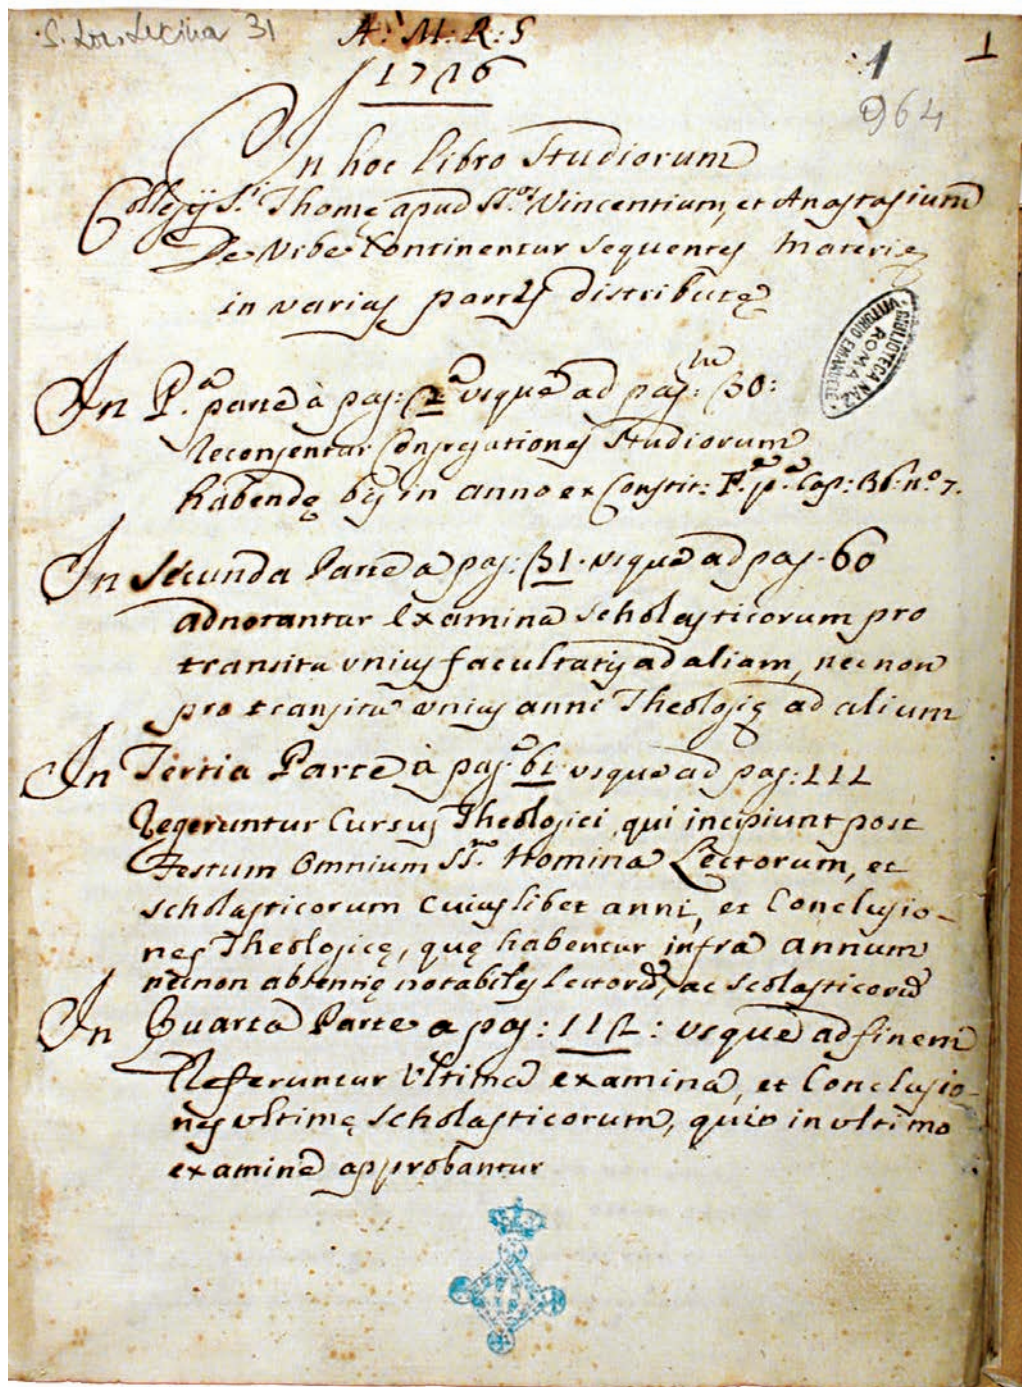 S. Lor. Lucina 31
A: M: R: S
1
1726
1
964
In hoc libro Studiorum
Collegij S.ti Thomę apud SS.os Vincentium, et Anastasium
De Urbe Continentur sequentes materię
in varias partes distributę
In P.a parte à pag: 2.a usque ad pag:m 30:
recensentur Congregationes Studiorum
habendę bis in anno ex Constit: P. p.a Cap: 36: n.o 7.
BIBLIOTECA NAZ
ROMA
VITTORIO EMANUELE
In Secunda Parte a pag: 31. usque ad pag. 60
adnotantur examina scholasticorum pro
transitu unius facultatis ad aliam, necnon
pro transitu unius anni Theologię ad alium
In Tertia Parte à pag. 61 usque ad pag: 111
Regeruntur Cursus Theologici, qui incipiunt post
Festum Omnium SS.m Nomina Lectorum, et
scholasticorum cuiuslibet anni, et Conclusio-
nes Theologicę, quę habentur infra annum
necnon absentię notabiles lectorū, ac scolasticorū
In Quarta Parte a pag: 112: usque ad finem
Referuntur Ultima examina, et Conclusio-
nes ultimę scholasticorum, qui in ultimo
examine approbantur